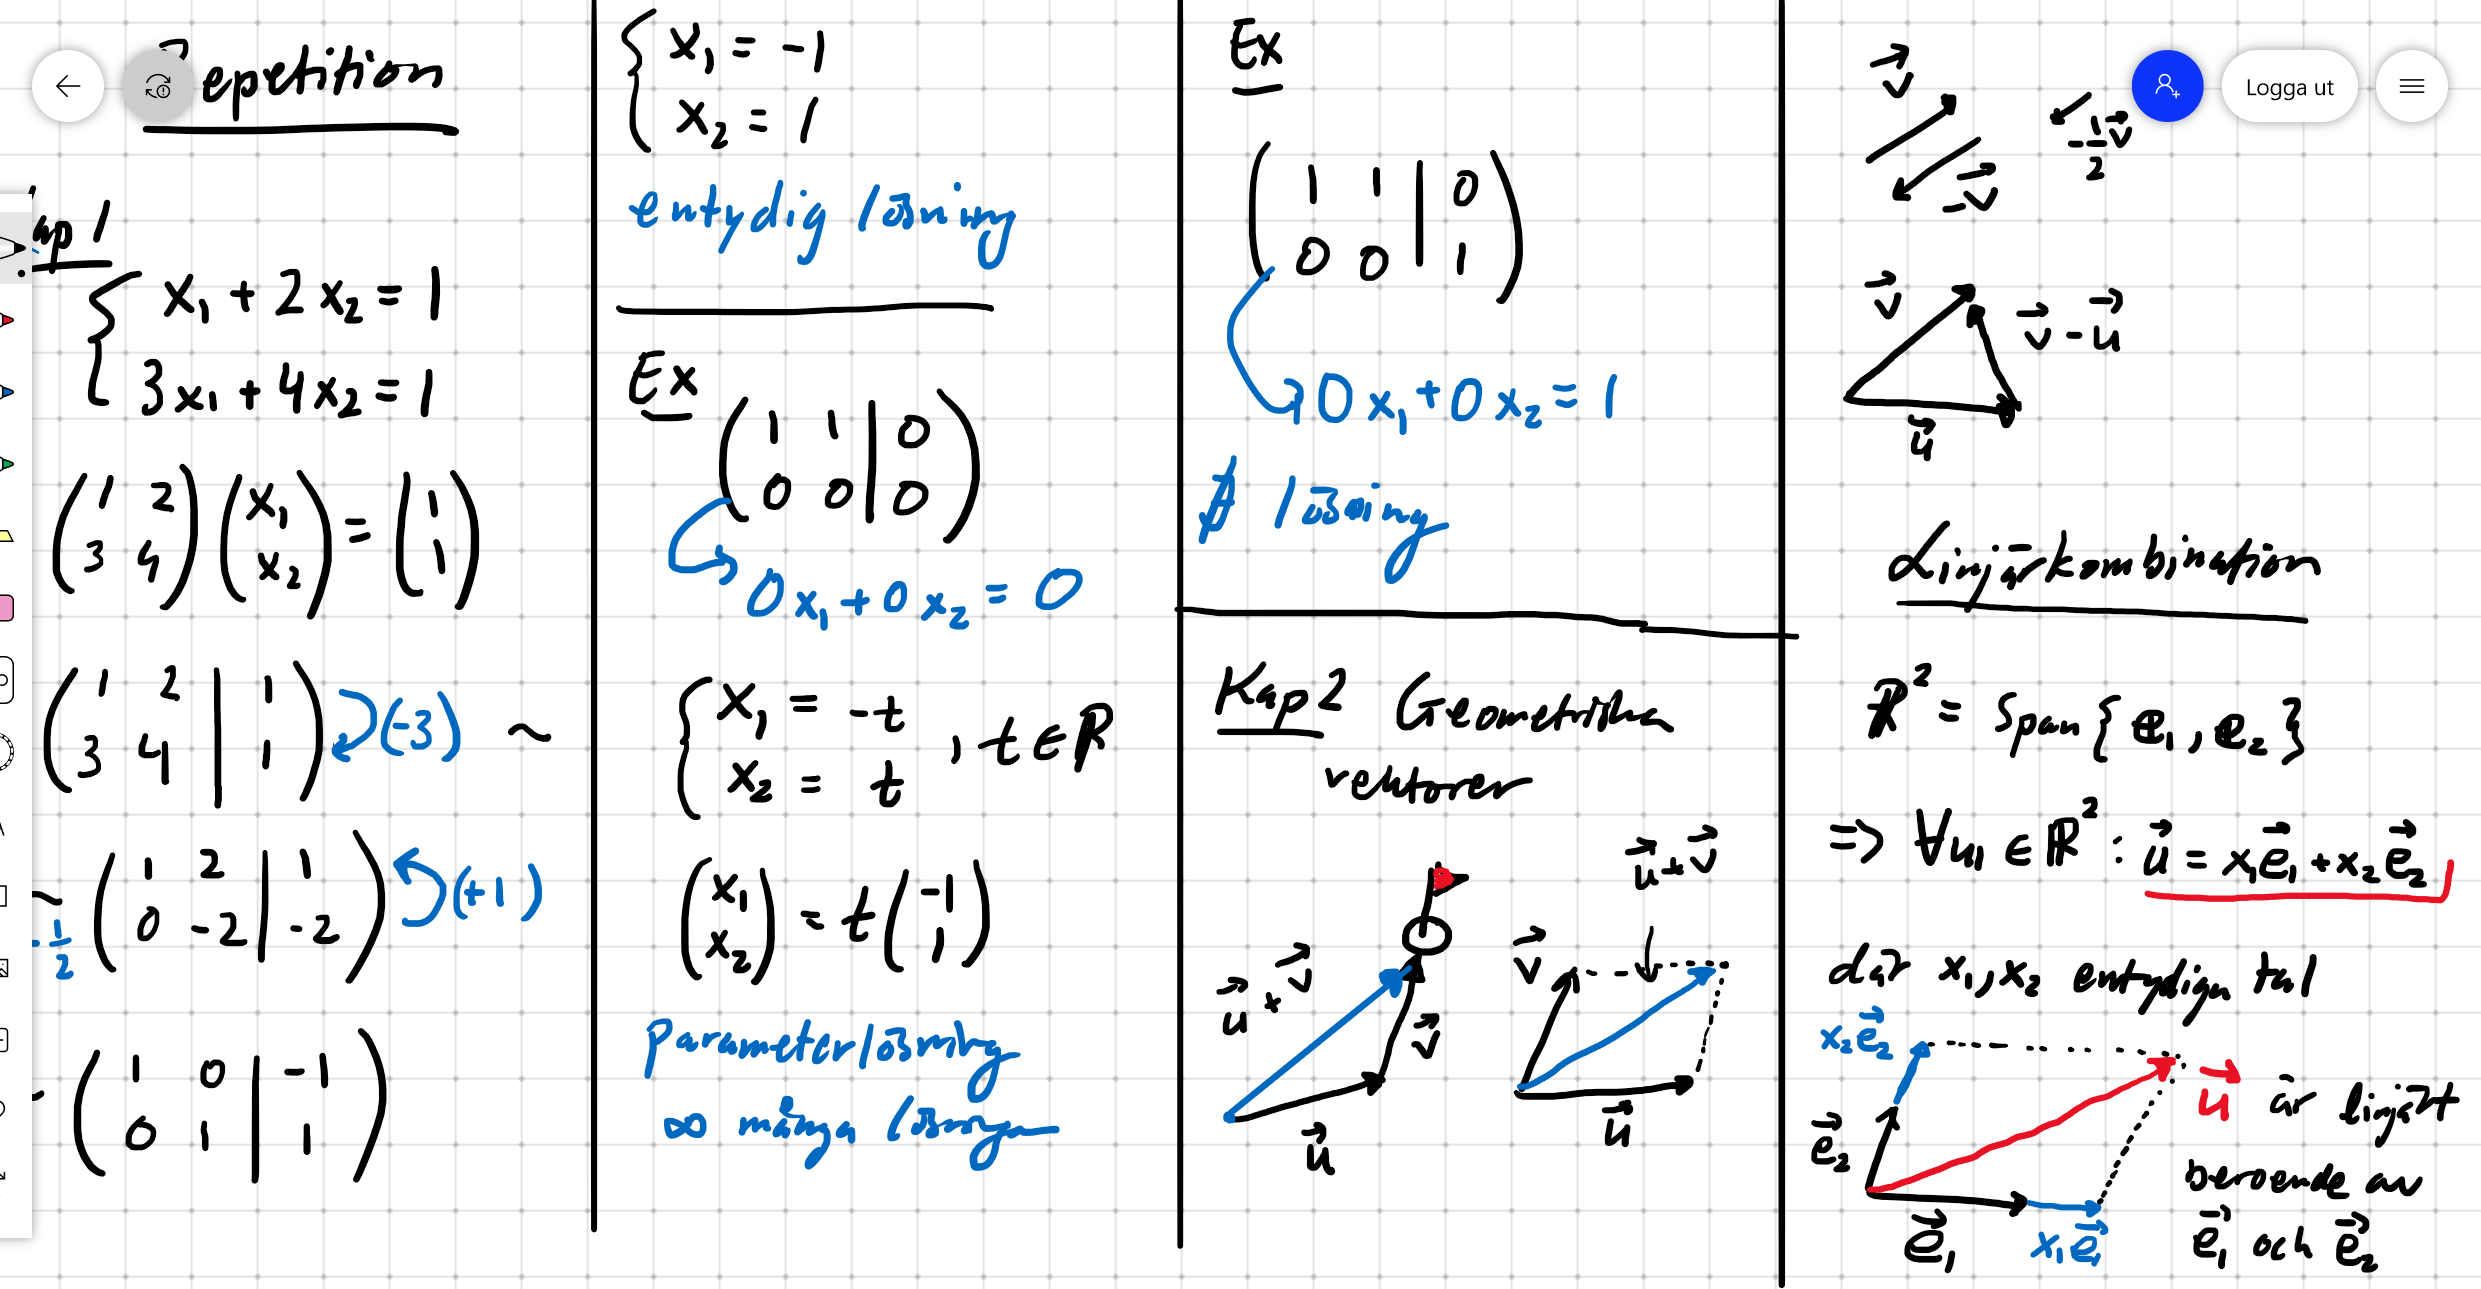 Repetition
Kap 1
{ x₁ + 2x₂ = 1
3x₁ + 4x₂ = 1
(1 2 / 3 4)(x₁ / x₂) = (1 / 1)
(1 2 | 1
3 4 | 1) (-3) ~
~ (1 2 | 1
-1/2 0 -2 | -2) (+1)
~ (1 0 | -1
0 1 | 1)
{ x₁ = -1
x₂ = 1
entydig lösning
Ex
(1 1 | 0
0 0 | 0)
0x₁ + 0x₂ = 0
{ x₁ = -t
x₂ = t , t ∈ ℝ
(x₁ / x₂) = t(-1 / 1)
parameterlösning
∞ många lösningar
Ex
(1 1 | 0
0 0 | 1)
0x₁ + 0x₂ = 1
∄ lösning
Kap 2 Geometriska
vektorer
u⃗ + v⃗
v⃗
u⃗
u⃗ + v⃗
v⃗
u⃗
Logga ut
v⃗
-v⃗
-1/2 v⃗
v⃗
v⃗ - u⃗
u⃗
Linjärkombination
ℝ² = Span{e₁, e₂}
=> ∀u ∈ ℝ² : u⃗ = x₁e⃗₁ + x₂e⃗₂
där x₁, x₂ entydiga tal
x₂e⃗₂
e⃗₂
e⃗₁
x₁e⃗₁
u⃗ är linjärt
beroende av
e⃗₁ och e⃗₂